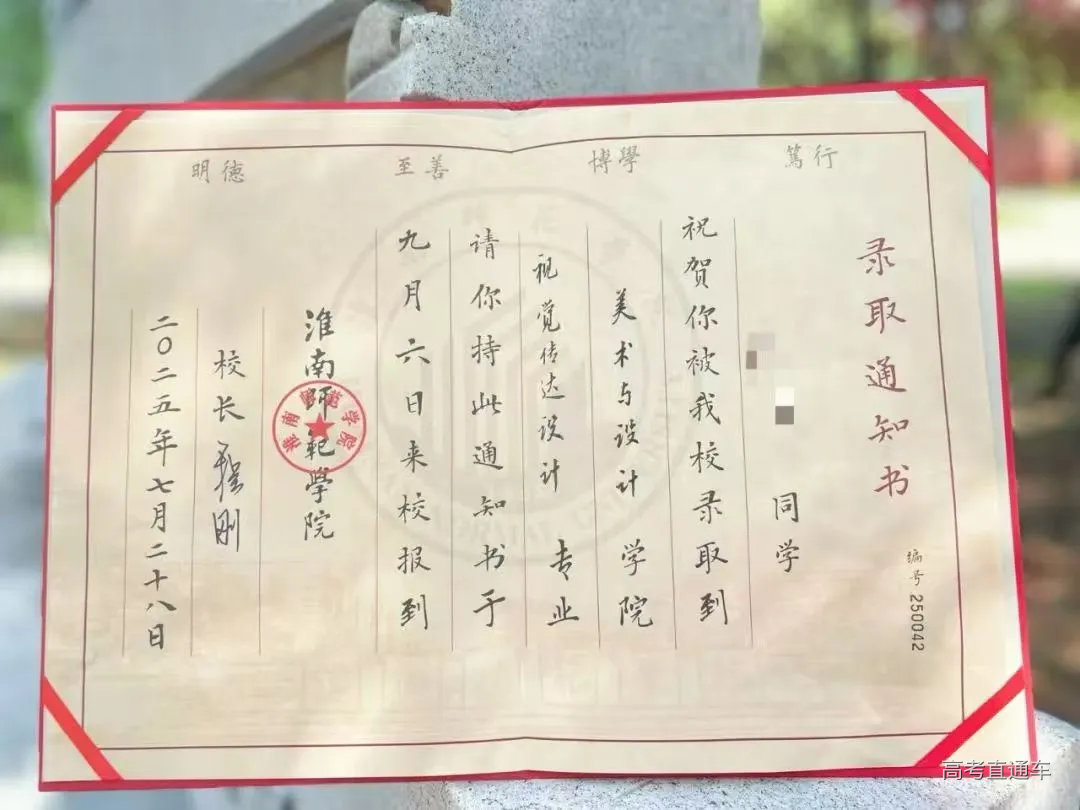 笃行
博學
至善
明德
录取通知书
编号 250042
同学
祝贺你被我校录取到
美术与设计 学院
视觉传达设计 专业
请你持此通知书于
九月六日来校报到
淮南師範學院
淮南師範学院
校长
刚
二〇二五年七月二十八日
高考直通车